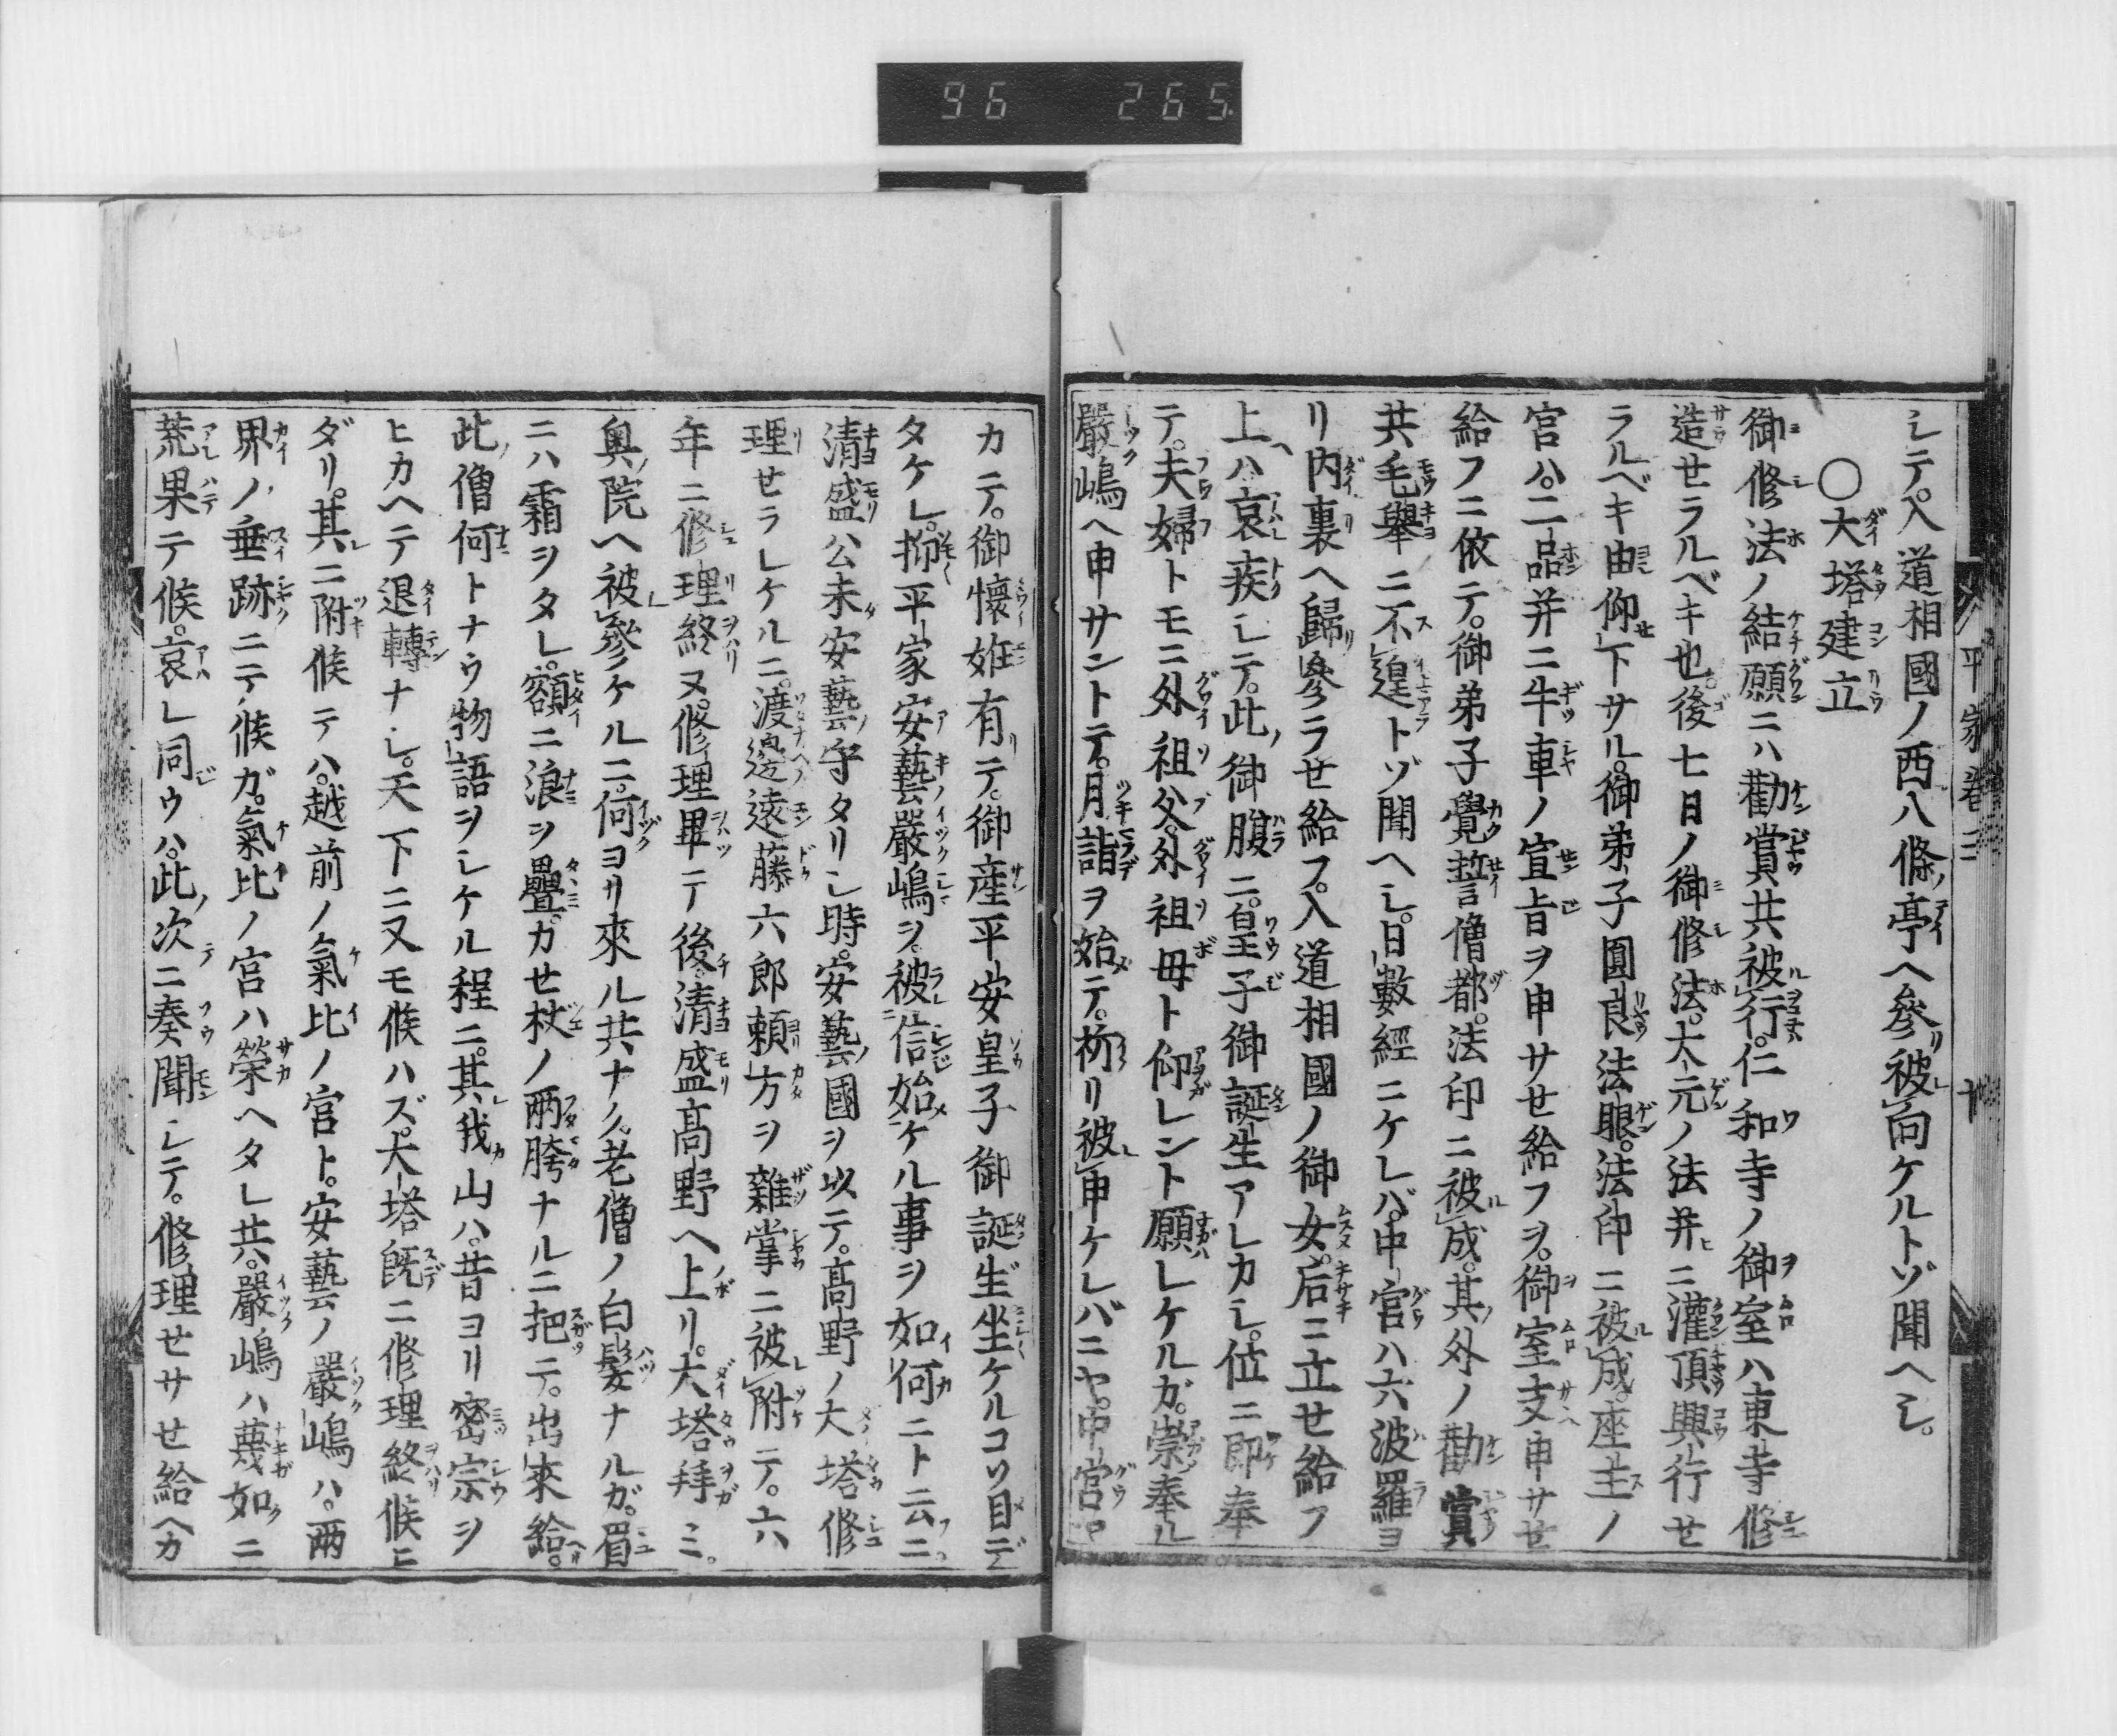 96 265
平家巻三 十
シテ。入道相國ノ西八條ノ亭ヘ參リ被向ケルトゾ聞ヘシ。
〇大塔建立
御修法ノ結願ニハ勸賞共被行。仁和寺ノ御室ハ東寺修
造セラルベキ也。後七日ノ御修法。大元ノ法并ニ灌頂興行セ
ラルベキ由仰下サル。御弟子圓良法眼。法印ニ被成。座主ノ
宮ハ。二品并ニ牛車ノ宣旨ヲ申サセ給フヲ。御室支申サセ
給フニ依テ。御弟子覺誓僧都。法印ニ被成。其外ノ勸賞
共毛擧ニ不遑トゾ聞ヘシ。日數經ニケレバ。中宮ハ六波羅ヨ
リ内裏ヘ歸參ラセ給フ。入道相國ノ御女。后ニ立セ給フ
上ハ。哀疾シテ。此御腹ニ。皇子御誕生アレカシ。位ニ即奉
テ。夫婦トモニ外祖父。外祖母ト仰レント願レケルガ。崇奉ル
嚴嶋ヘ申サントテ。月詣ヲ始テ。祈リ被申ケレバニヤ。中宮ヤ
カテ。御懷姙有テ。御産平安皇子御誕生坐ケルコソ目デ
タケレ。抑平家安藝嚴嶋ヲ。被信始ケル事ヲ如何ニト云ニ。
清盛公未安藝守タリシ時。安藝國ヲ以テ。高野ノ大塔修
理セラレケルニ。渡邊遠藤六郎頼方ヲ雜掌ニ被附テ。六
年ニ修理終ヌ。修理畢テ後。清盛高野ヘ上リ。大塔拜ミ。
奥院ヘ被參ケルニ。何ヨリ來ル共ナク。老僧ノ白髮ナルガ。眉
ニハ霜ヲタレ。額ニ浪ヲ疊ガセ杖ノ兩胯ナルニ把テ。出來給。
此僧何トナウ物語ヲシケル程ニ。其我山ハ。昔ヨリ密宗ヲ
ヒカヘテ退轉ナシ。天下ニ又モ候ハズ。大塔既ニ修理終候ヒ
ダリ。其ニ附候テハ。越前ノ氣比ノ宮ト。安藝ノ嚴嶋ハ。兩
界ノ垂跡ニテ候ガ。氣比ノ宮ハ榮ヘタレ共。嚴嶋ハ蔑如ニ
荒果テ候。哀レ同ウハ。此次ニ奏聞シテ。修理セサセ給ヘカ